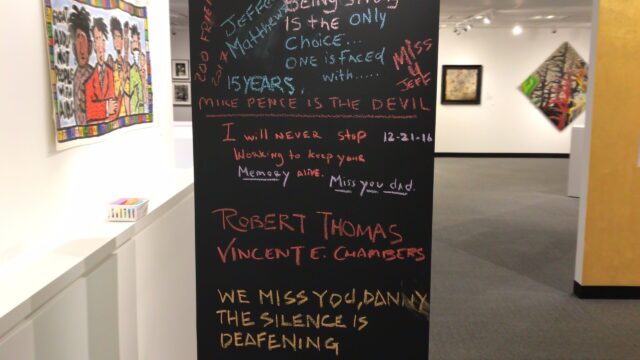 Being strong
Is the only
Choice...
one is faced
with.....
Jeffe
Matthews
200
2017
15 YEARS.
Miss
u
Jeff
MIKE PENCE IS THE DEVIL
I will NEVER stop 12-21-16
Working to keep your
Memory alive.
Miss you dad.
ROBERT THOMAS
VINCENT E. CHAMBERS
WE MISS YOU, DANNY
THE SILENCE IS
DEAFENING